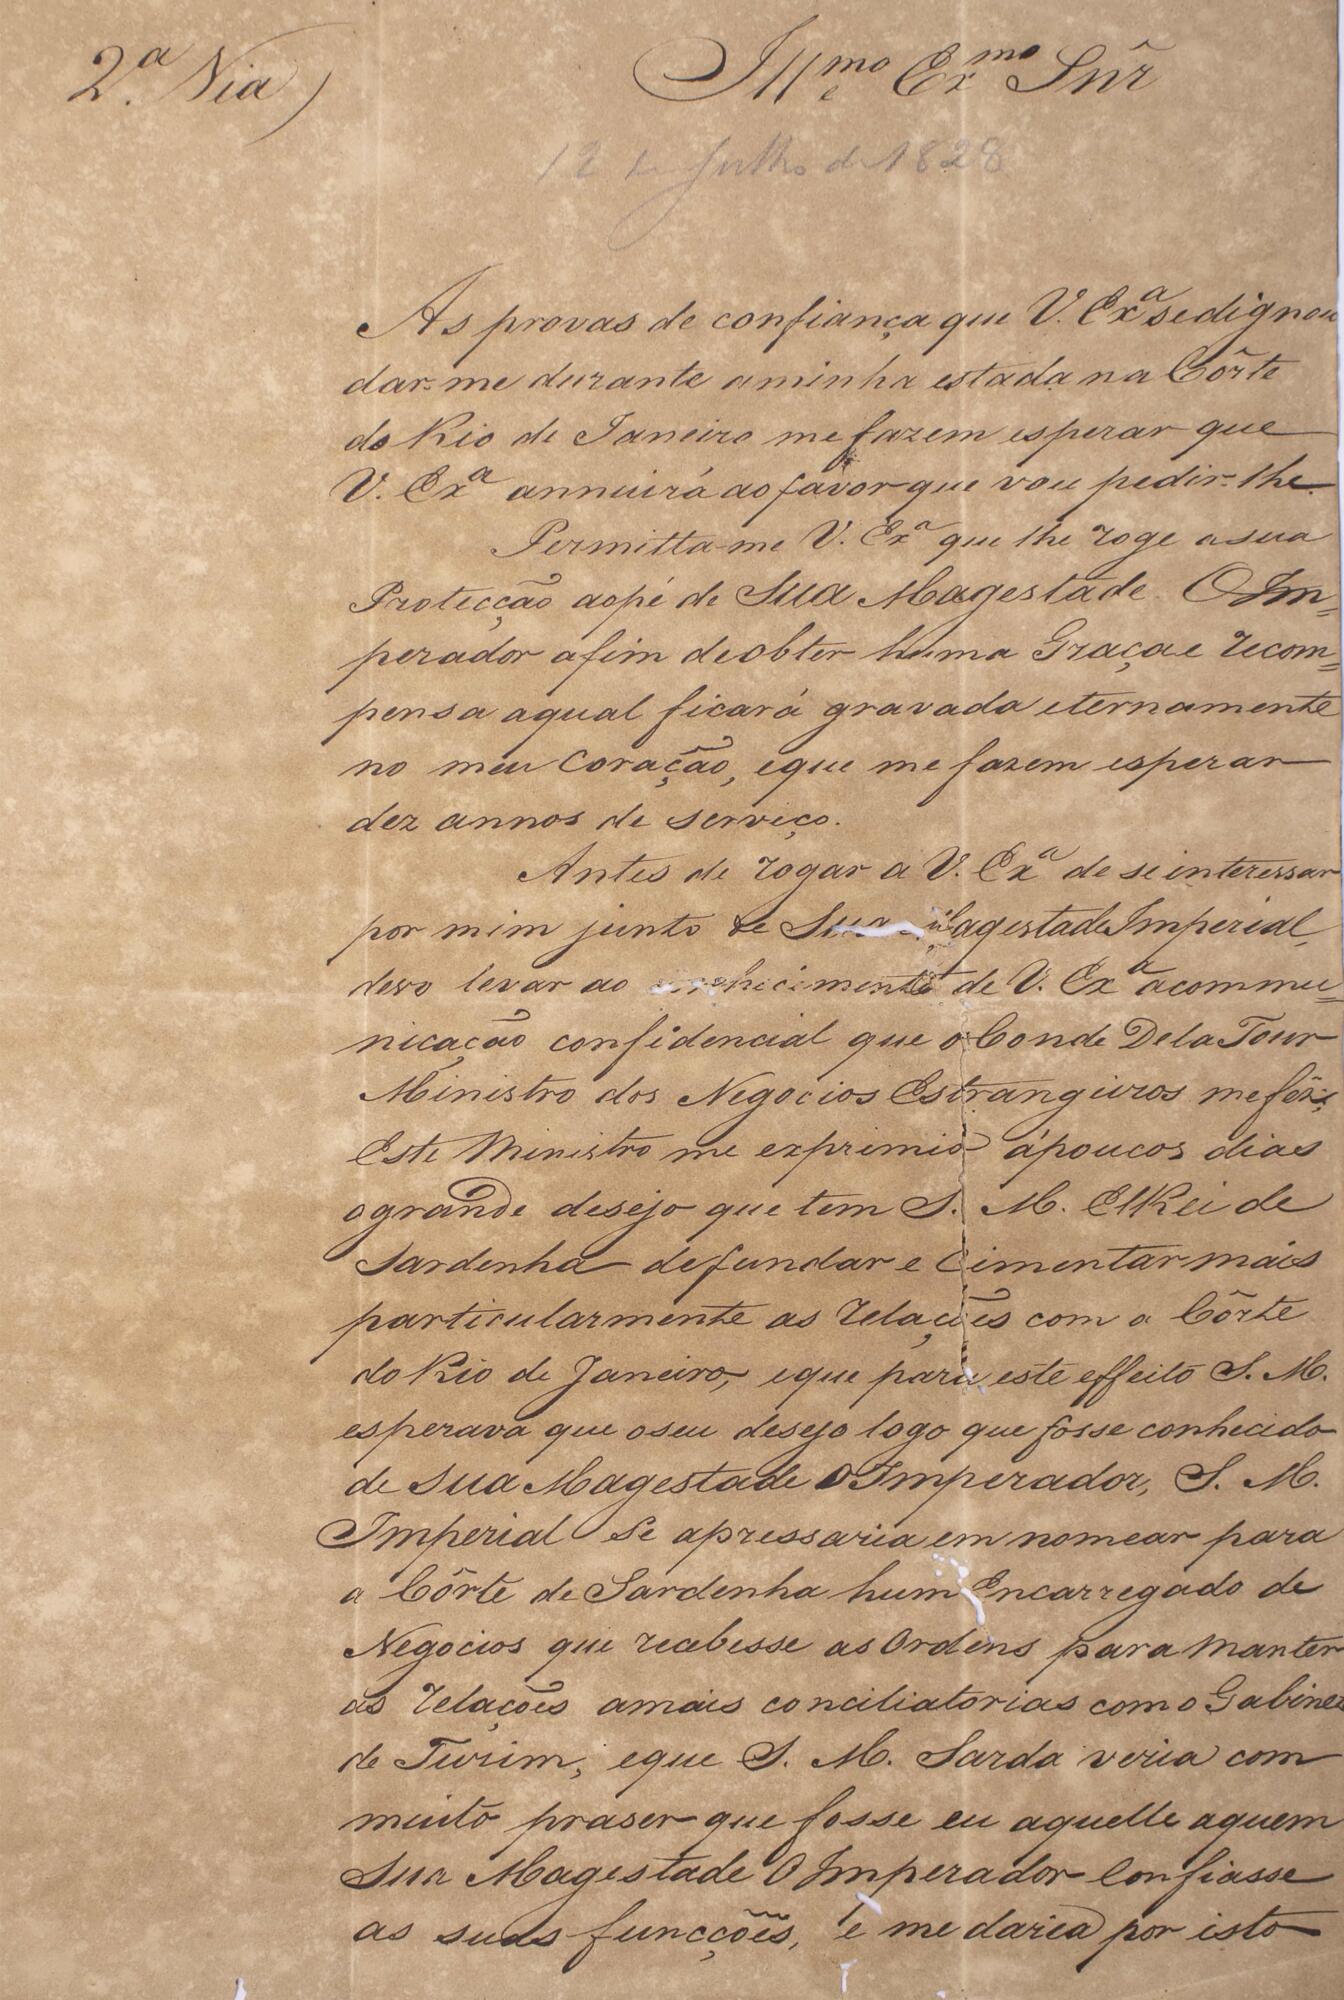 2.ª Via)
Illmo e Exmo Snr
12 de Julho de 1828
As provas de confiança que V. Exª se dignou
dar-me durante a minha estada na Côrte
do Rio de Janeiro me fazem esperar que
V. Exª annuirá ao favor que vou pedir-lhe.
Permitta-me V. Exª que lhe roge a sua
Protecção ao pé de Sua Magestade O Im=
perador afim de obter huma Graça e recom=
pensa a qual ficará gravada eternamente
no meu Coração, e que me fazem esperar
dez annos de serviço.
Antes de rogar a V. Exª de se interessar
por mim junto de Sua Magestade Imperial,
devo levar ao conhecimento de V. Exª a commu=
nicação confidencial que o Conde De la Tour
Ministro dos Negocios Estrangeiros me fêz;
Este Ministro me exprimio á poucos dias
o grande desejo que tem S. M. ElRei de
Sardenha de fundar e cimentar mais
particularmente as relações com a Côrte
do Rio de Janeiro, e que para este effeito S. M.
esperava que o seu desejo logo que fosse conhecido
de Sua Magestade O Imperador, S. M.
Imperial se apressaria em nomear para
a Côrte de Sardenha hum Encarregado de
Negocios que recebesse as Ordens para manter
as relações a mais conciliatorias com o Gabinete
de Turim, e que S. M. Sarda veria com
muito praser que fosse eu aquelle a quem
Sua Magestade O Imperador Confiasse
as suas funcções, e me daria por isto